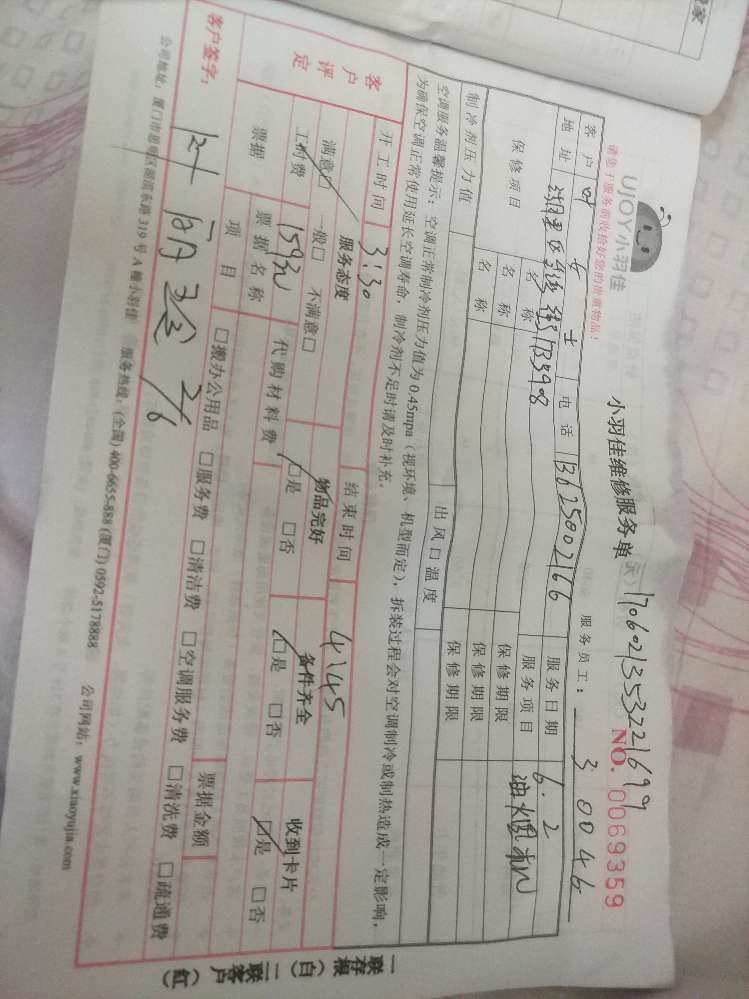 UJOY小羽佳
小羽佳维修服务单
NO. 0069359
1706021353221699
请您于服务前收拾好您的贵重物品!
服务员工: 3 0046
客户 叶 女士 电话 13625002166 服务日期 6.2
地址 湖里区 服务项目 油烟机
保修项目 名称 保修期限
名称 保修期限
名称 保修期限
制冷剂压力值 出风口温度
空调服务温馨提示:空调正常制冷剂压力值为0.45mpa(视环境、机型而定),拆装过程会对空调制冷或制热造成一定影响,
为确保空调正常使用延长空调寿命,制冷剂不足时请及时补充。
开工时间 3:30 结束时间 4:45
客户评定 服务态度 物品完好 备件齐全 收到卡片
满意□ 一般□ 不满意□ □是 □否 □是 □否 □是 □否
工时费 159元 代购材料费
票据 票据名称 票据金额
项目 □搬办公用品 □服务费 □清洁费 □空调服务费 □清洗费 □疏通费
客户签字: 2/6
公司地址:厦门市思明区湖滨东路319号A幢小羽佳 服务热线:(全国)400-6655-888(厦门)0592-5178888 公司网站:www.xiaoyujia.com
一联存根(白) 二联客户(红)